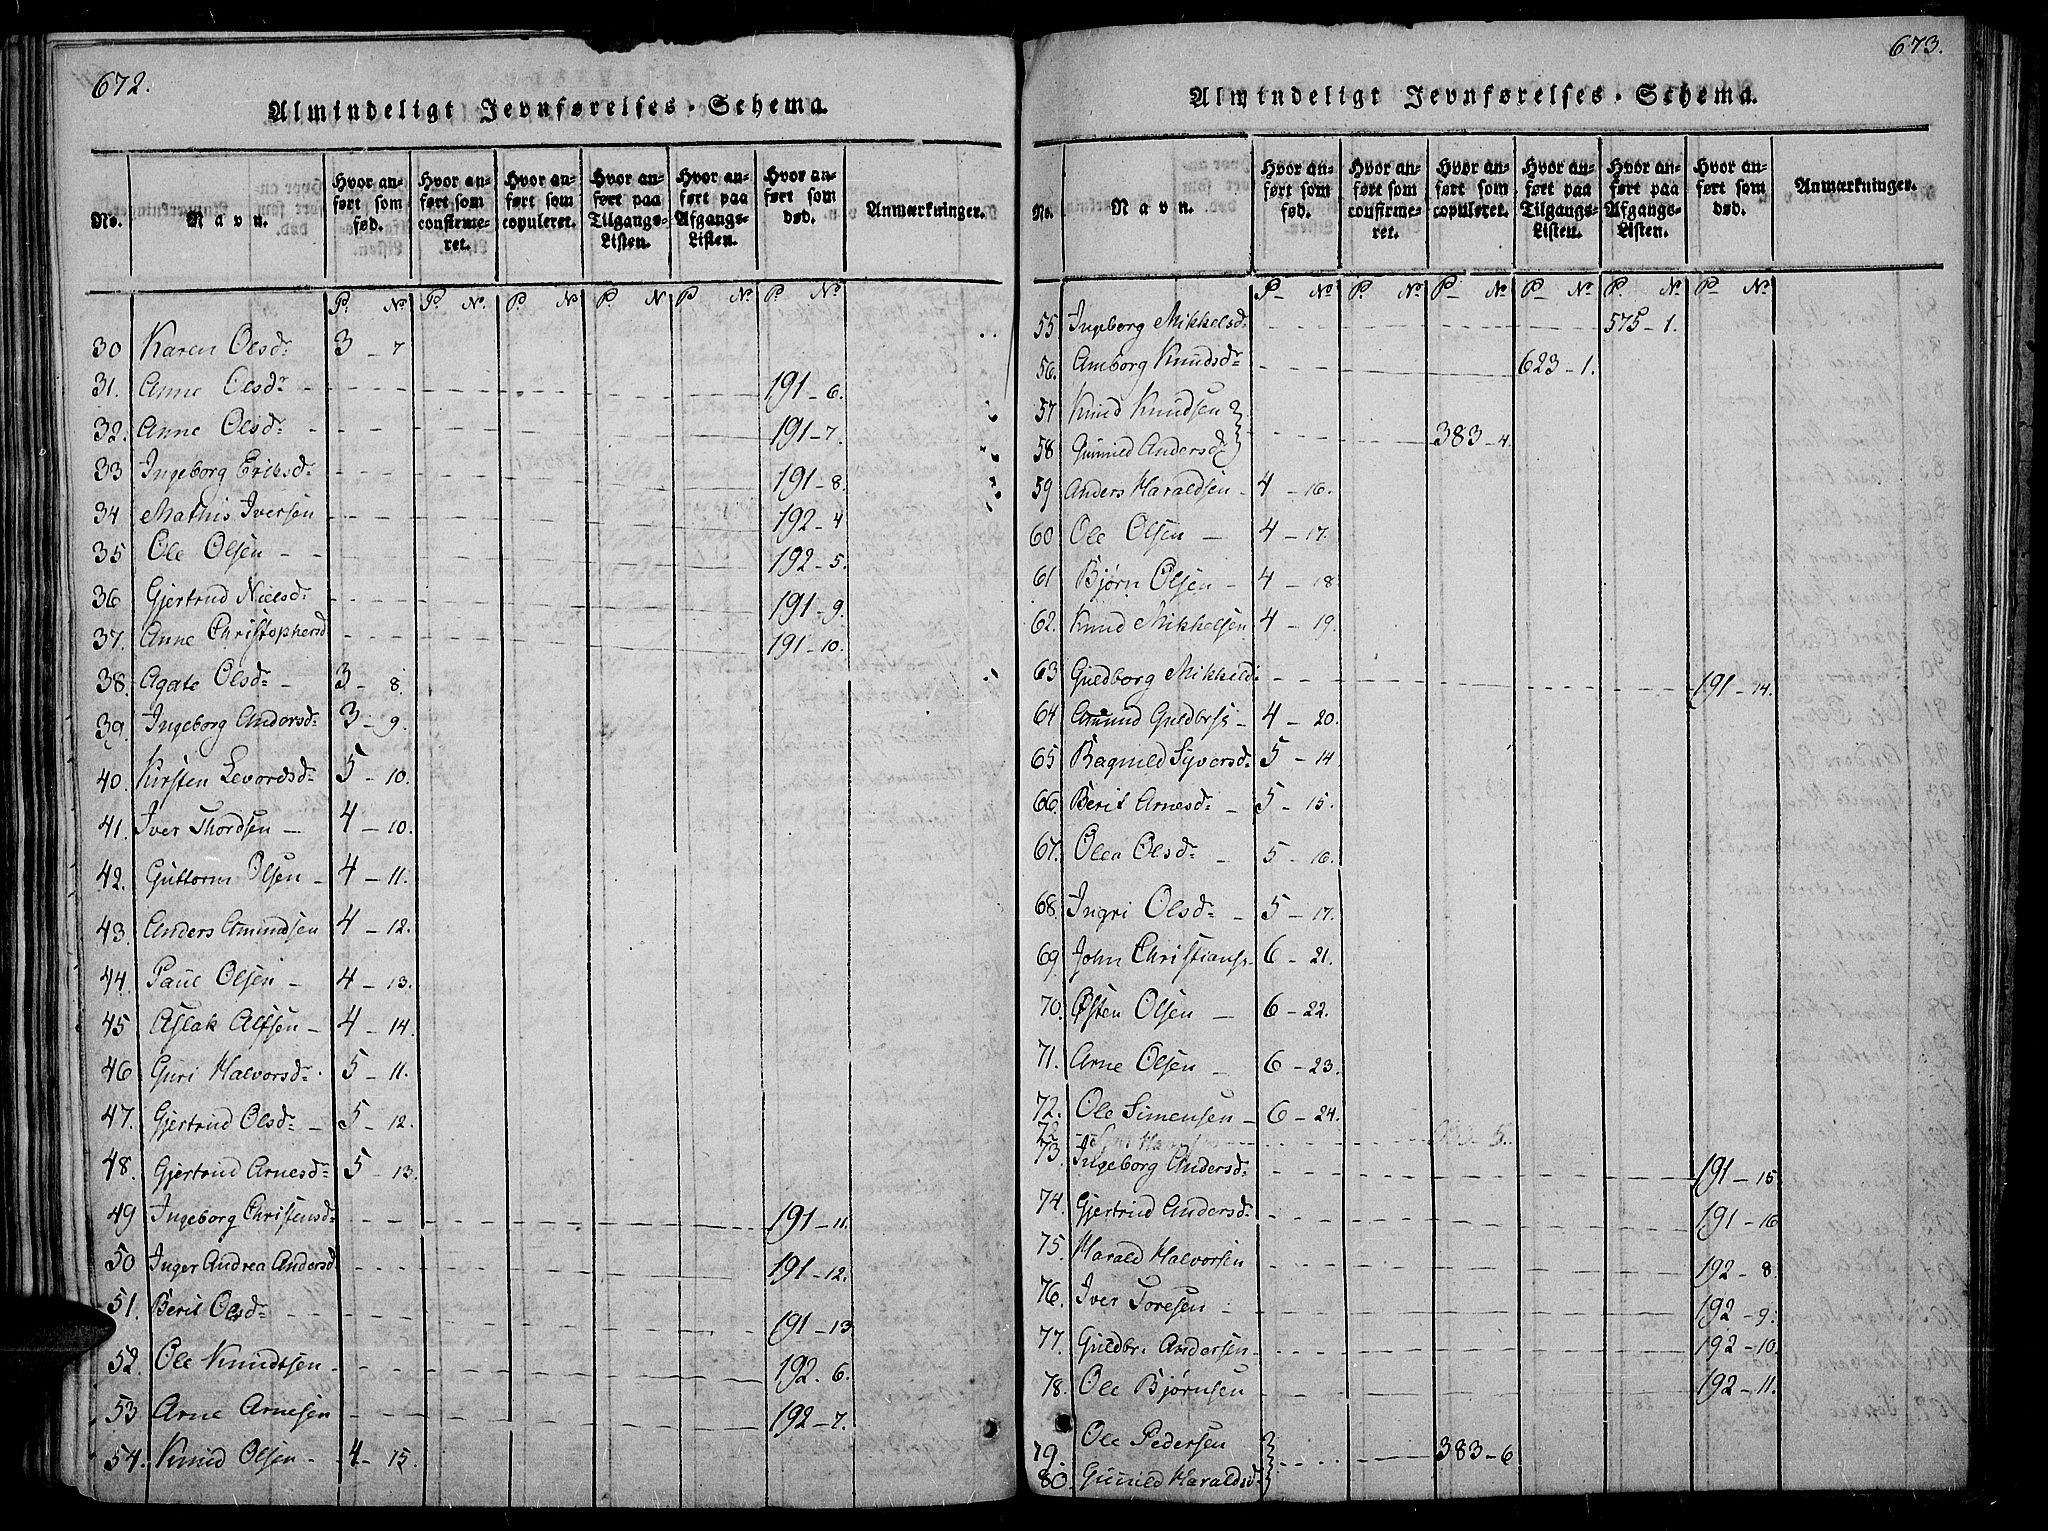 672.
Almindeligt Jevnførelses-Schema.
No.
Navn.
Hvor anført som fød.
Hvor anført som confirmeret.
Hvor anført som copuleret.
Hvor anført paa Tilgangs-Listen.
Hvor anført paa Afgangs-Listen.
Hvor anført som død.
Anmærkninger.
P. No P. No. P. No P. N P. No P. No
30 Karen Olsdr 3 - 7
31. Anne Olsdr - 191 - 6.
32. Anne Olsdr - 191 - 7.
33 Ingeborg Eriksdr 191 - 8.
34 Mathis Iversen 192 - 4
35 Ole Olsen - 192 - 5.
36 Gjertrud Nielsdr 191 - 9.
37. Anne Christophersd 191 - 10.
38. Agate Olsdr - 3 - 8.
39. Ingeborg Andersdr 3 - 9.
40. Kirsten Levordsdr 5 - 10.
41. Iver Thordsen - 4 - 10.
42. Guttorm Olsen - 4 - 11.
43. Anders Amundsen 4 - 12.
44. Paul Olsen - 4 - 13.
45 Aslak Alfsen - 4 - 14.
46 Guri Halvorsdr 5 - 11.
47. Gjertrud Olsdr - 5 - 12.
48. Gjertrud Arnesdr 5 - 13.
49 Ingeborg Christensdr 191 - 11.
50 Inger Andrea Andersd 191 - 12.
51. Berit Olsdr 191 - 13
52. Ole Knudtsen - 192. 6.
53 Arne Arnesen 192 - 7.
54. Knud Olsen - 4 - 15.
673.
Almindeligt Jevnførelses-Schema.
No.
Navn.
Hvor anført som fød.
Hvor anført som confirmeret.
Hvor anført som copuleret.
Hvor anført paa Tilgangs-Listen.
Hvor anført paa Afgangs-Listen.
Hvor anført som død.
Anmærkninger.
P No P. No P No P No P. No P No
55 Ingeborg Mikkelsd. 575 - 1.
56. Amborg Knudsdr 623 - 1.
57 Knud Knudsen
58 Gunnild Andersd 383 - 4.
59 Anders Haraldsen - 4 - 16.
60 Ole Olsen - 4 - 17.
61 Bjørn Olsen - 4 - 18
62. Knud Mikkelsen 4 - 19.
63 Guldborg Mikkelsd. 191 - 14.
64 Amund Guldbrs - 4 - 20.
65 Ragnild Syversdr 5 - 14
66. Berit Arnesdr - 5 - 15.
67. Olea Olsdr - 5 - 16.
68. Ingri Olsdr - 5 - 17.
69. John Christians. 6 - 21.
70. Østen Olsen - 6 - 22.
71. Arne Olsen - 6 - 23.
72. Ole Simensen - 6 - 24.
73. Ingeborg Andersdr 191 - 15
74. Gjertrud Andersdr 191 - 16
75. Harald Halvorsen 192 - 8.
76. Iver Toresen 192 - 9.
77. Guldbr. Andersen 192 - 10.
78. Ole Bjørnsen 192 - 11.
79. Ole Pedersen 383 - 6
80. Gunnild Haraldsd